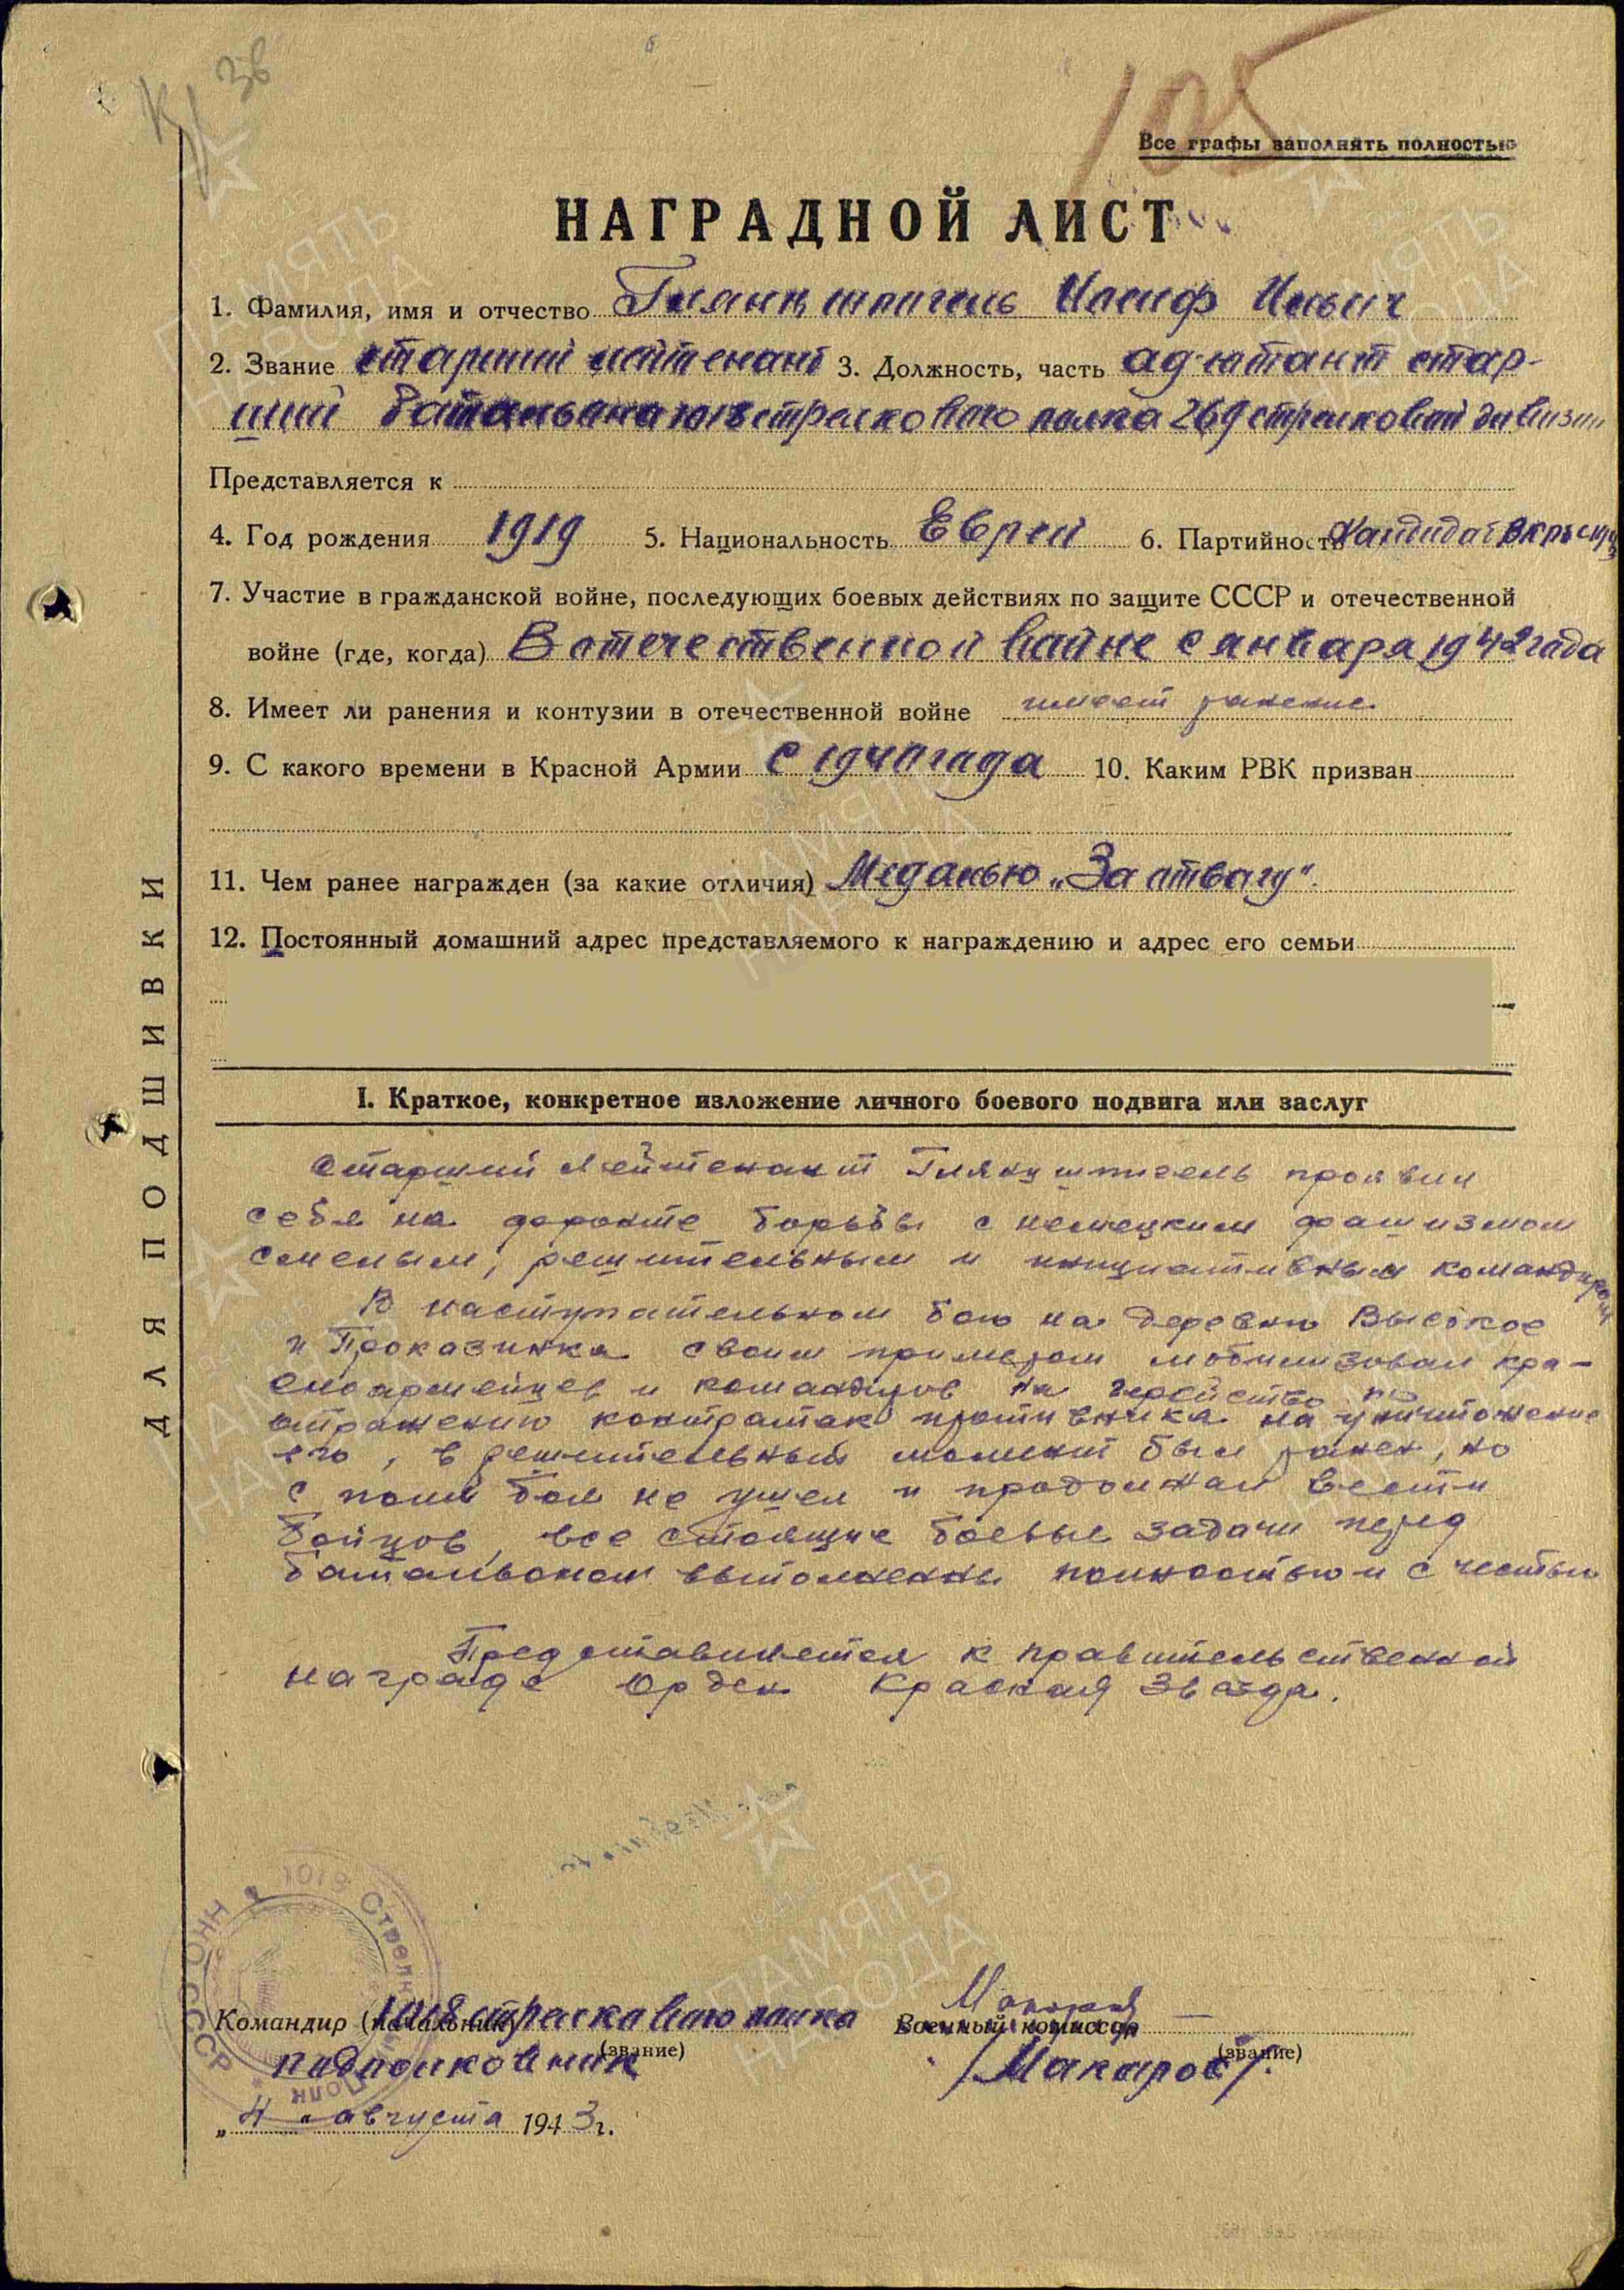 К 36
105
Все графы заполнять полностью
НАГРАДНОЙ ЛИСТ
1. Фамилия, имя и отчество Глянцшпигель Иосиф Ильич
2. Звание старший лейтенант 3. Должность, часть ад'ютант стар-
ший батальона 1018 стрелкового полка 269 стрелковой дивизии
Представляется к
4. Год рождения 1919 5. Национальность Еврей 6. Партийность Кандидат ВКП(б) с
7. Участие в гражданской войне, последующих боевых действиях по защите СССР и отечественной
войне (где, когда) В отечественной войне с января 1942 года
8. Имеет ли ранения и контузии в отечественной войне имеет ранение
9. С какого времени в Красной Армии с 1940 года 10. Каким РВК призван
11. Чем ранее награжден (за какие отличия) Медалью „За отвагу".
12. Постоянный домашний адрес представляемого к награждению и адрес его семьи
ДЛЯ ПОДШИВКИ
I. Краткое, конкретное изложение личного боевого подвига или заслуг
Старший лейтенант Глянцшпигель проявил
себя на фронте борьбы с немецким фашизмом
смелым, решительным и инициативным командиром
В наступательном бою на деревню Высокое
и Проказинка своим примером мобилизовал кра-
сноармейцев и командиров на геройство по
отражению контратак противника на уничтожение
его, в решительный момент был ранен, но
с поля боя не ушел и продолжал вести
бойцов, все стоящие боевые задачи перед
батальоном выполненны полностью и с честью
Представляется к правительственной
награде Орден Красная Звезда.
1018 Стрелк Полк НКО СССР
Командир (начальник) 1018 стрелкового полка Военный комиссар
(звание) (звание)
подполковник /Макаров/.
„4" августа 1943 г.
ПАМЯТЬ НАРОДА